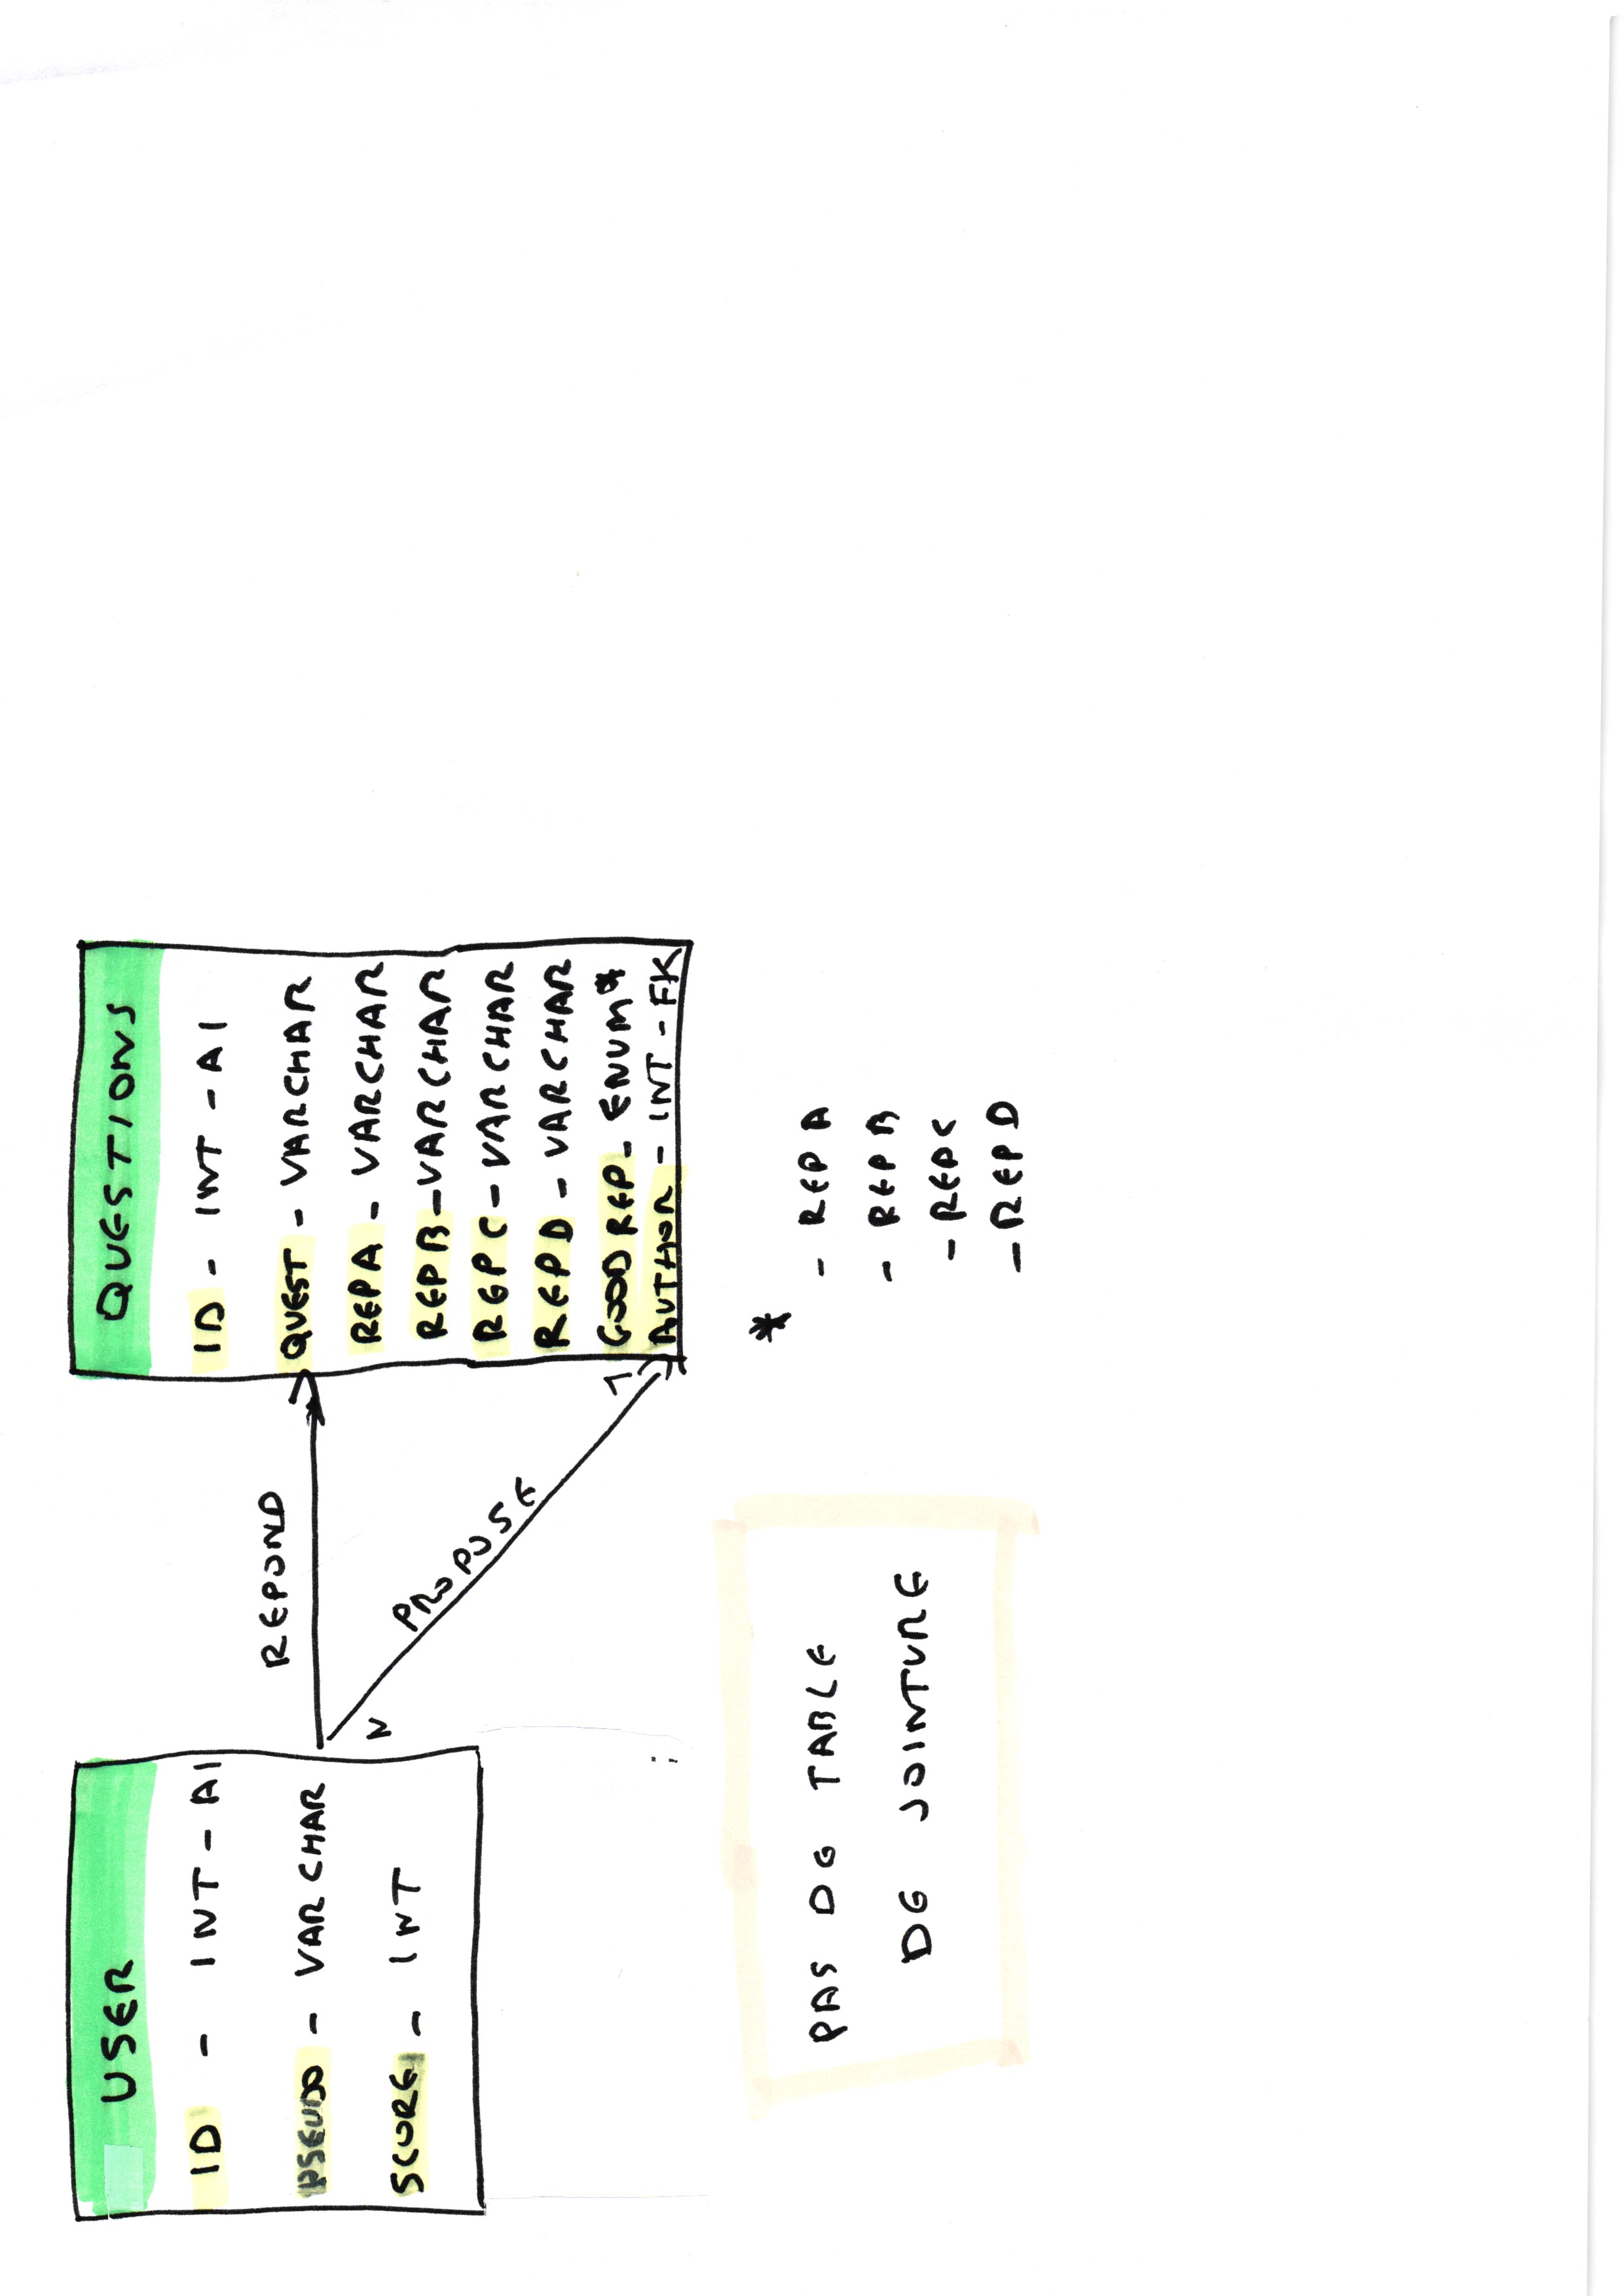 USER
ID - INT - AI
PSEUDO - VARCHAR
SCORE - INT
REPOND
N
PROPOSE
1
QUESTIONS
ID - INT - AI
QUEST - VARCHAR
REPA - VARCHAR
REPB - VARCHAR
REPC - VARCHAR
REPD - VARCHAR
GOODREP - ENUM*
AUTHOR - INT - FK
PAS DE TABLE
DE JOINTURE
*
- REPA
- REPB
- REPC
- REPD
;